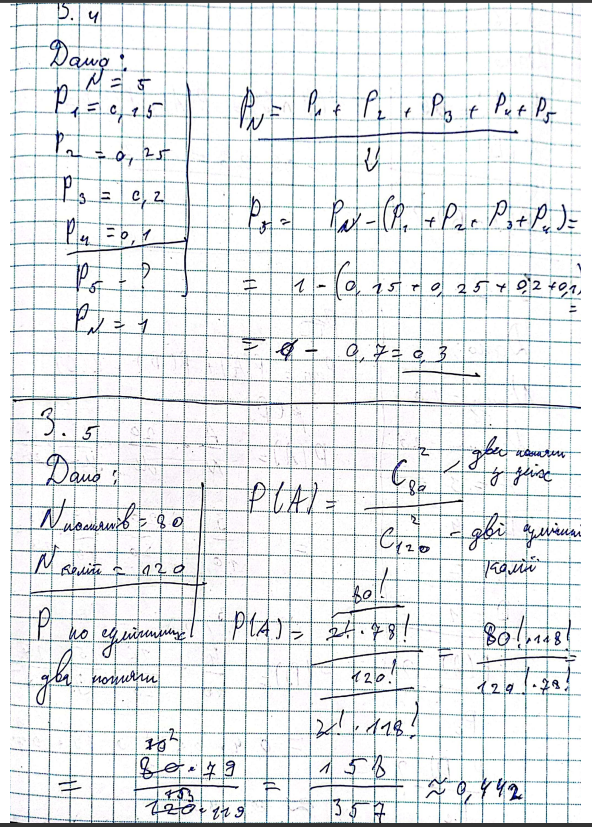 3.4
Дано:
N = 5
P1 = 0,15
P2 = 0,25
P3 = 0,2
P4 = 0,1
P5 - ?
PN = 1
PN = P1 + P2 + P3 + P4 + P5
⇓
P5 = PN - (P1 + P2 + P3 + P4) =
= 1 - (0,15 + 0,25 + 0,2 + 0,1) =
= 1 - 0,7 = 0,3
3.5
Дано:
N потягів = 80
N колій = 120
P по суміжних
два потяги
P(A) = C²80 / C²120
два потяги
у
- дві суміжні
колії
P(A) = (80! / 2! · 78!) / (120! / 2! · 118!) = 80! · 118! / 120! · 78! =
= 80 · 79 / 120 · 119 = 158 / 357 ≈ 0,442